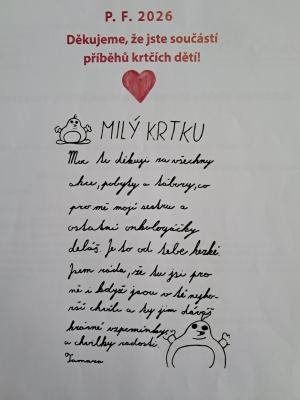 P. F. 2026
Děkujeme, že jste součástí
příběhů krtčích dětí!
MILÝ KRTKU
Moc ti děkuji za všechny
akce, pobyty a tábory, co
pro mě mojí sestru a
ostatní onkologáčky
děláš. Je to od tebe hezké.
Jsem ráda, že tu jsi pro
ně i když jsou v té nejho-
rší chvíle a ty jim dáváš
krásné vzpomínky
a chvilky radosti.
Tamara